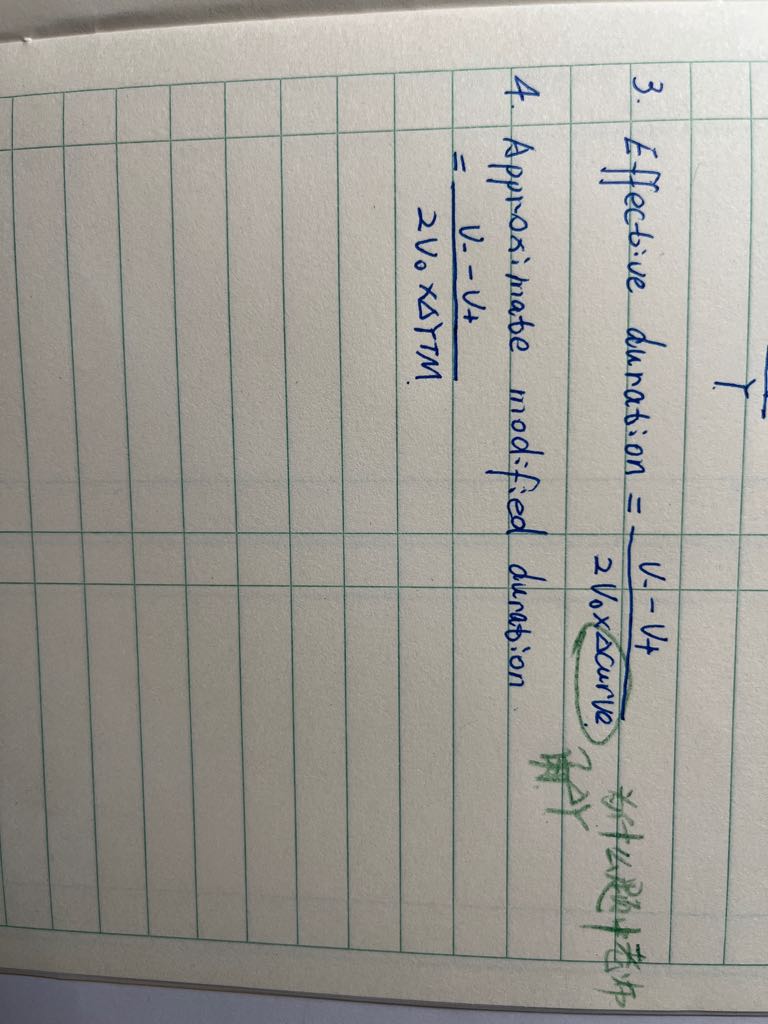 Y
3. Effective duration = V₋ - V₊
2V₀×Δcurve 为什么题中老师
用ΔY
4. Approximate modified duration
= V₋ - V₊
2V₀×ΔYTM